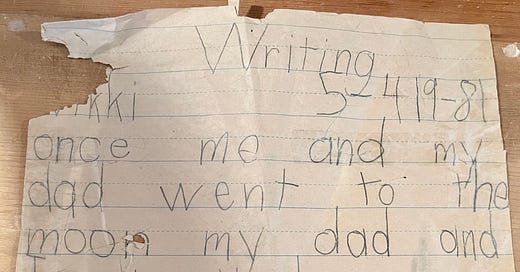 Writing
kki 5-4 19-81
once me and my
dad went to the
moon my dad and